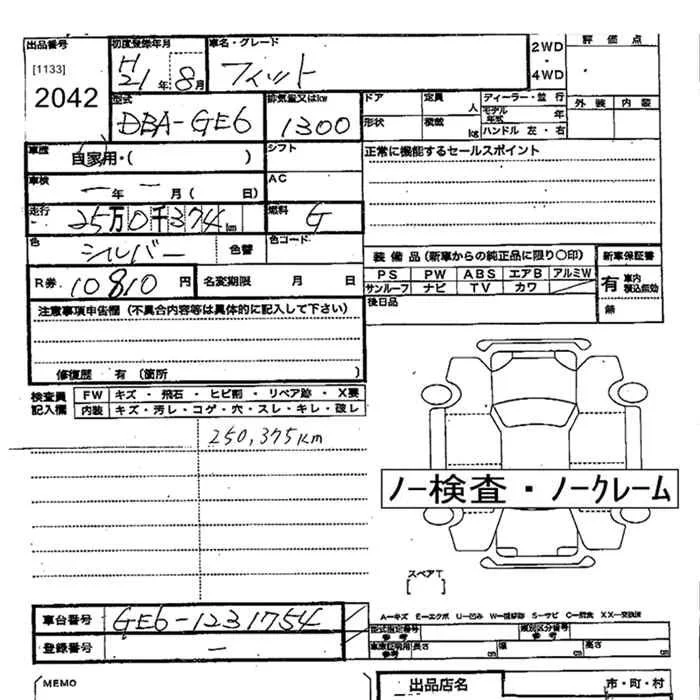 出品番号 初度登録年月 車名・グレード 2WD 評価点
[1133] H21年 8月 フィット ・ 4WD
2042 外装 内装
型式 排気量又はkw ドア 定員 人 ディーラー・並行
DBA-GE6 1300 形状 積載 kg モデル年式 年
ハンドル 左・右
車歴 自家用・( ) シフト 正常に機能するセールスポイント
車検 ー年 ー月( 日) AC
走行 25万0千374km 燃料 G
色 シルバー 色替 色コード
装備品(新車からの純正品に限り〇印) 新車保証書
R券 10810円 名変期限 月 日 PS PW ABS エアB アルミW 有 車内 積込無効
サンルーフ ナビ TV カワ
後日品 無
注意事項申告欄(不具合内容等は具体的に記入して下さい)
修復歴 有(箇所 )
検査員記入欄 FW キズ・飛石・ヒビ割・リペア跡・X要
内装 キズ・汚レ・コゲ・穴・スレ・キレ・破レ
250,375km
ノー検査・ノークレーム
スペアT
[ ]
車台番号 GE6-1231754
A-キズ E-エクボ U-凹み W-補修跡 S-サビ C-腐食 XX-交換済
型式指定番号 参考 類別区分番号 参考
登録番号 ー 車庫証明用 参考 長さ cm 幅 cm 高さ cm
MEMO 出品店名 市・町・村